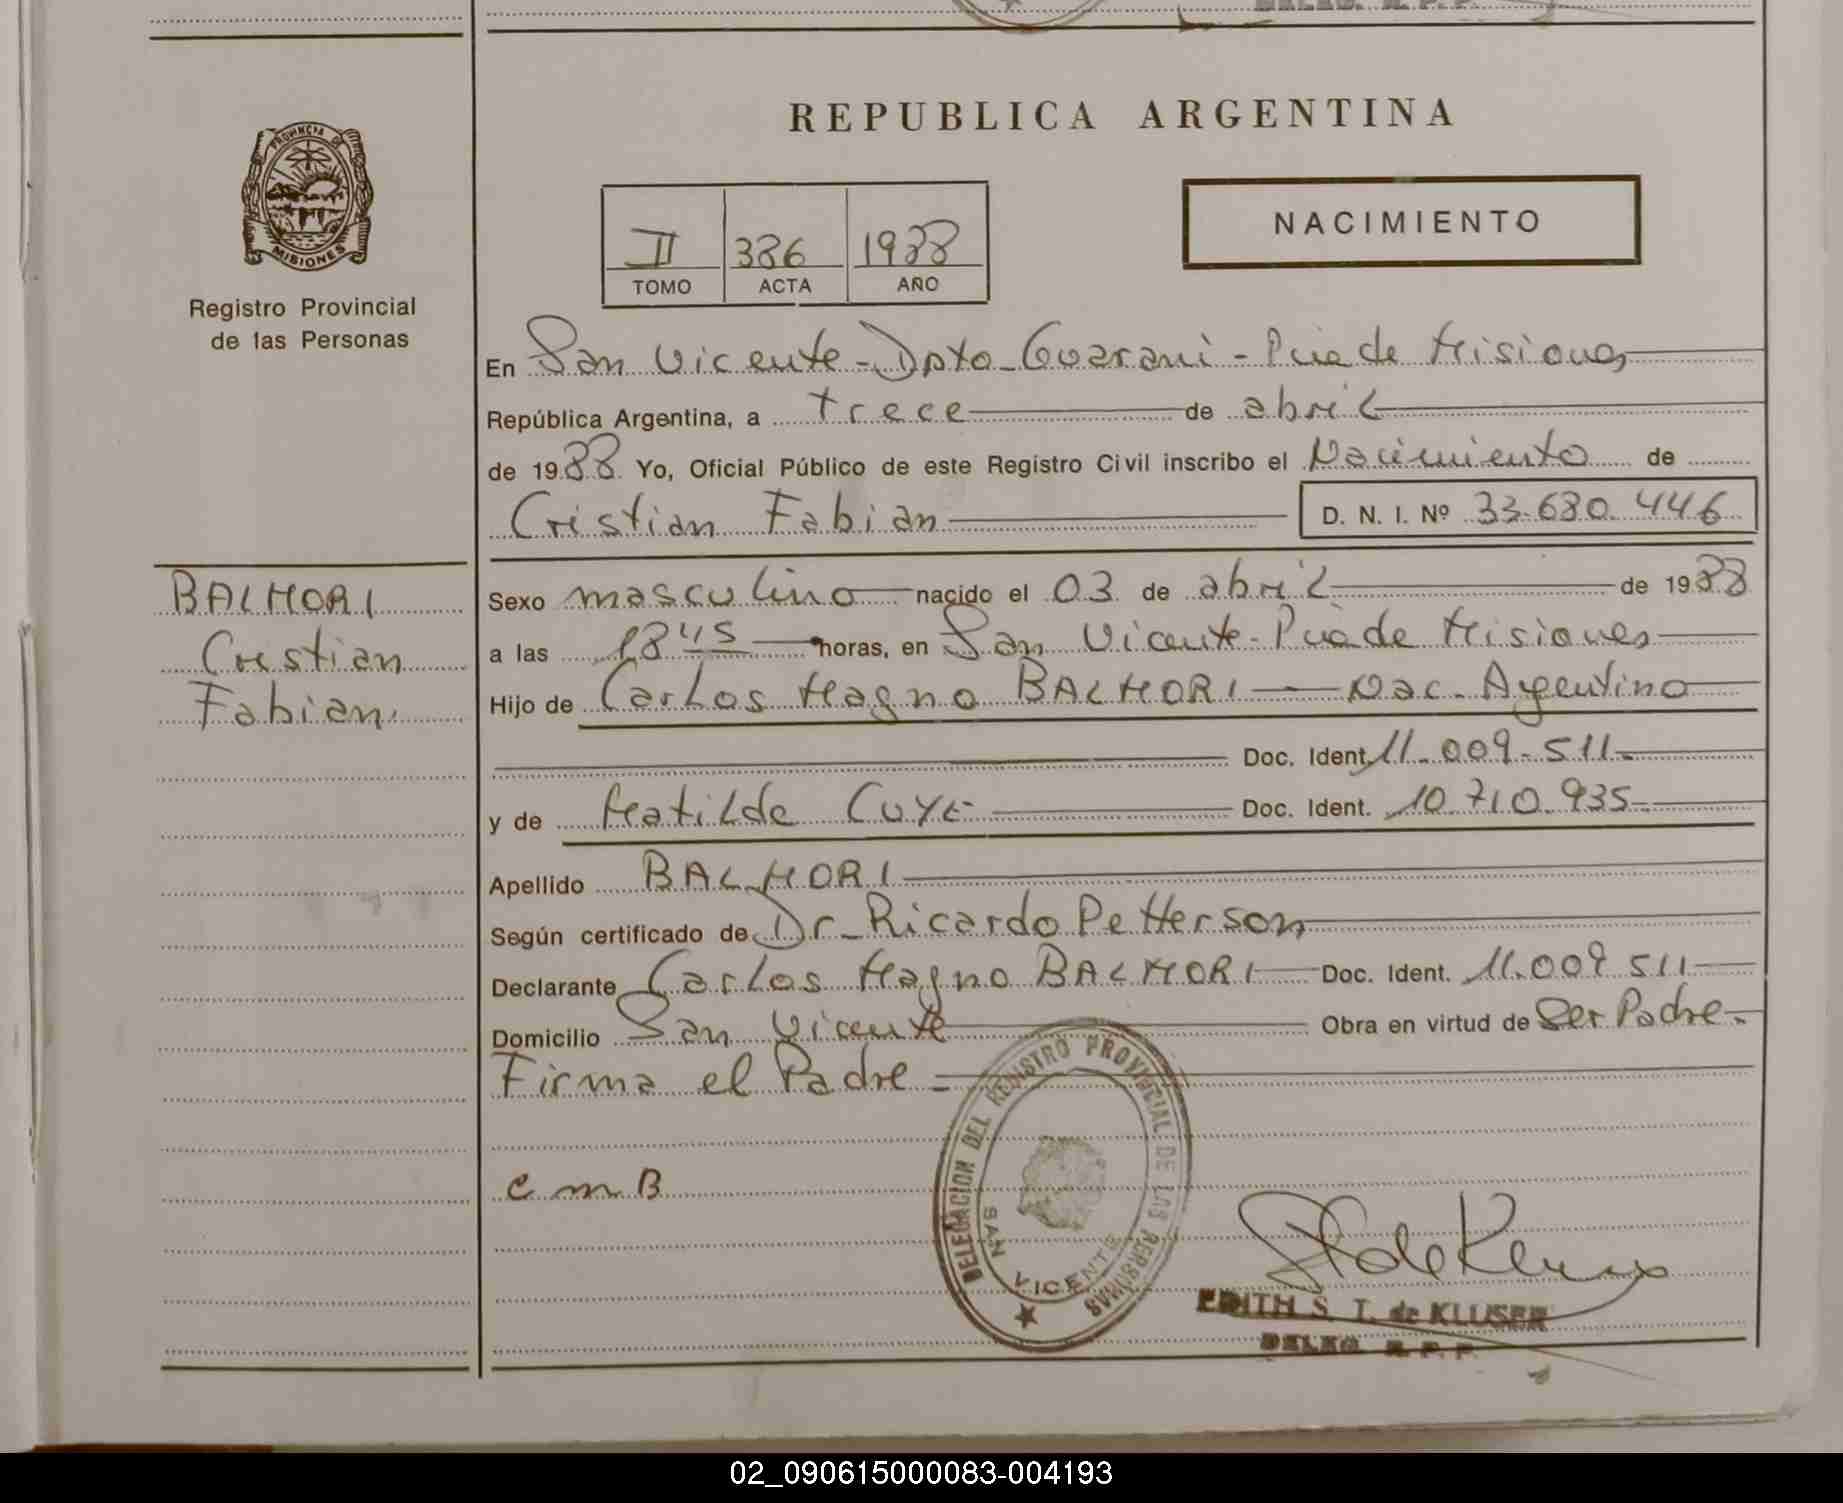 DELEG. R. P. P.
REPUBLICA ARGENTINA
PROVINCIA
MISIONES
Registro Provincial
de las Personas
NACIMIENTO
II 386 1988
TOMO ACTA AÑO
En San Vicente - Dpto - Guarani - Pcia de Misiones
República Argentina, a trece de abril
de 1988 Yo, Oficial Público de este Registro Civil inscribo el Nacimiento de
Cristian Fabian D. N. I. Nº 33.680.446
BALMORI
Cristian
Fabian
Sexo masculino nacido el 03 de abril de 1988
a las 18 45 horas, en San Vicente - Pcia de Misiones
Hijo de Carlos Magno BALMORI — Nac. Argentino
Doc. Ident. 11.009.511.-
y de Matilde Doc. Ident. 10.710.935.-
Apellido BALMORI
Según certificado de Dr. Ricardo Petterson
Declarante Carlos Magno BALMORI Doc. Ident. 11.009 511
Domicilio San Vicente Obra en virtud de Ser Padre.-
Firma el Padre -
c m B
DELEGACION DEL REGISTRO PROVINCIAL DE LAS PERSONAS
SAN VICENTE
EDITH S. T. de KLUSER
DELEG. R. P. P.
02_090615000083-004193